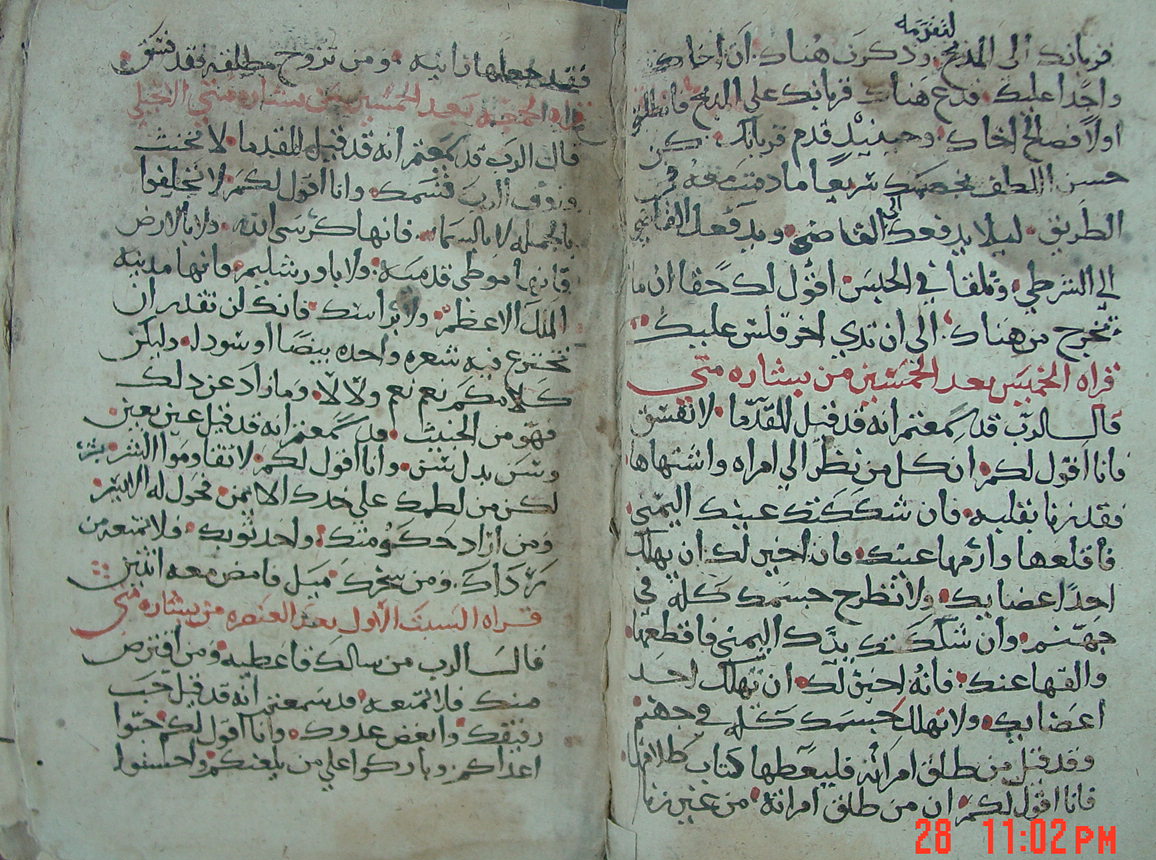 لتقدمه
قربانك الى المذبح وذكرت هناك ان اخاك
واجدا عليك فدع هناك قربانك على المذبح فانطلق
اولا فصالح اخاك وحينيذ قدم قربانك كن
حسن اللطف بخصمك سريعا ما دمت معه في
الطريق ليلا يدفعك الى القاضي ويدفعك القاضي
الى الشرطي وتلقا في الحبس اقول لك حقا ان ما
تخرج من هناك الى ان تدي اخر فلس عليك
قراه الخميس بعد الخمسين من بشاره متي
قال الرب قد سمعتم انه قد قيل للقدما لا تفسق
فانا اقول لكم ان كل من نظر الي امراه واشتهاها
فقد زنا بقلبه فان شككتك عينك اليمني
فاقلعها وارمها عنك فان اخير لك ان يهلك
احد اعضايك ولا تطرح جسمك كله في
جهنم وان شككتك يدك اليمني فاقطعها
والقها عنك فانه اخير لك ان يهلك احد
اعضايك ولا تهلك جسمك كله في جهنم
وقد قيل من طلق امراته فليعطها كتاب طلاقها
فانا اقول لكم ان من طلق امراته من غير زنا
فقد جعلها زانيه ومن تزوج مطلقه فقد فسق
قراه الجمعه بعد الخمسين من بشاره متي الانجيلي
قال الرب قد سمعتم انه قد قيل للقدما لا تحنث
وتوف الرب قسمك وانا اقول لكم لا تحلفوا
بالجمله لا بالسما فانها كرسي الله ولا بالارض
فانها موطى قدميه ولا باورشليم فانها مدينه
الملك الاعظم ولا براسك فانك لن تقدر ان
تخترع فيه شعره واحده بيضا او سودا وليكن
كلامكم نعم نعم ولا لا وما زاد عن ذلك
فهو من الخبيث قد سمعتم انه قد قيل عين بعين
وسن بدل سن وانا اقول لكم لا تقاوموا الشر بشر
لكن من لطمك علي خدك الايمن فحول له الايسر
ومن اراد حكومتك واخد ثوبك فلا تمنعه من
رداك ومن سخرك ميل فامض معه اثنين
قراه السبت الاول بعد العنصره من بشاره متي
قال الرب من سالك فاعطيه ومن اقترض
منك فلا تمنعه قد سمعتم انه قد قيل حب
رفيقك وابغض عدوك وانا اقول لكم حبوا
اعداكم وباركوا علي من يلعنكم واحسنوا
28 11:02 PM